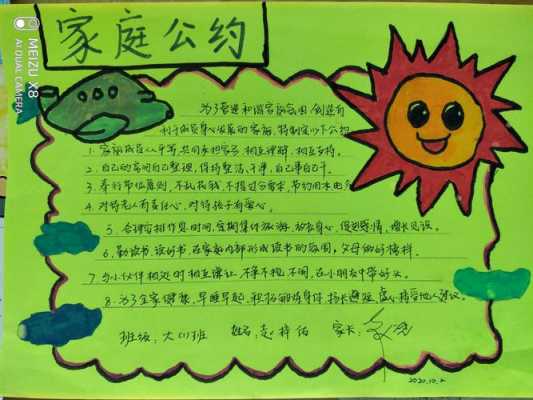 MEIZU X8
AI DUAL CAMERA
家庭公约
为了营造和谐家庭氛围,创造有
利于成员身心发展的家庭,特制定以下公约
1.家庭成员人人平等,共同承担家务,相互理解,相互支持。
2.自己的房间自己整理,保持整洁、干净,自己事自己干。
3.奉行节俭原则,不乱花钱,不提过分要求,节约用水电
4.对待老人有责任心,对待孩子有爱心。
5.合理安排作息时间,定期集体旅游,放松身心,促进感情,增长见识。
6.勤读书、读好书,在家庭内部形成读书的氛围,父母做好榜样。
7.与小伙伴相处时相互谦让,不争不抢,不闹,在小朋友中带好头。
8.为了全家健康,早睡早起,积极锻炼身体,扬长避短,虚心接受他人建议。
班级:大(1)班 姓名:赵梓 家长:
2020.10.2